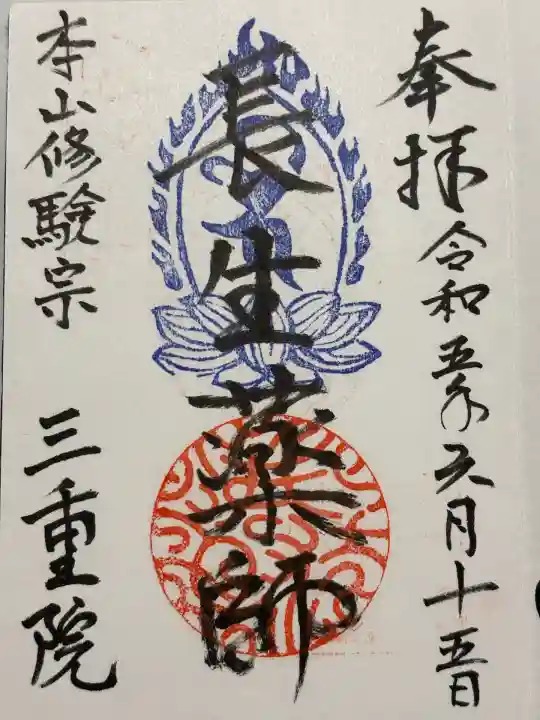 奉拝 令和五年六月十五日
長生薬師
本山修験宗 三重院